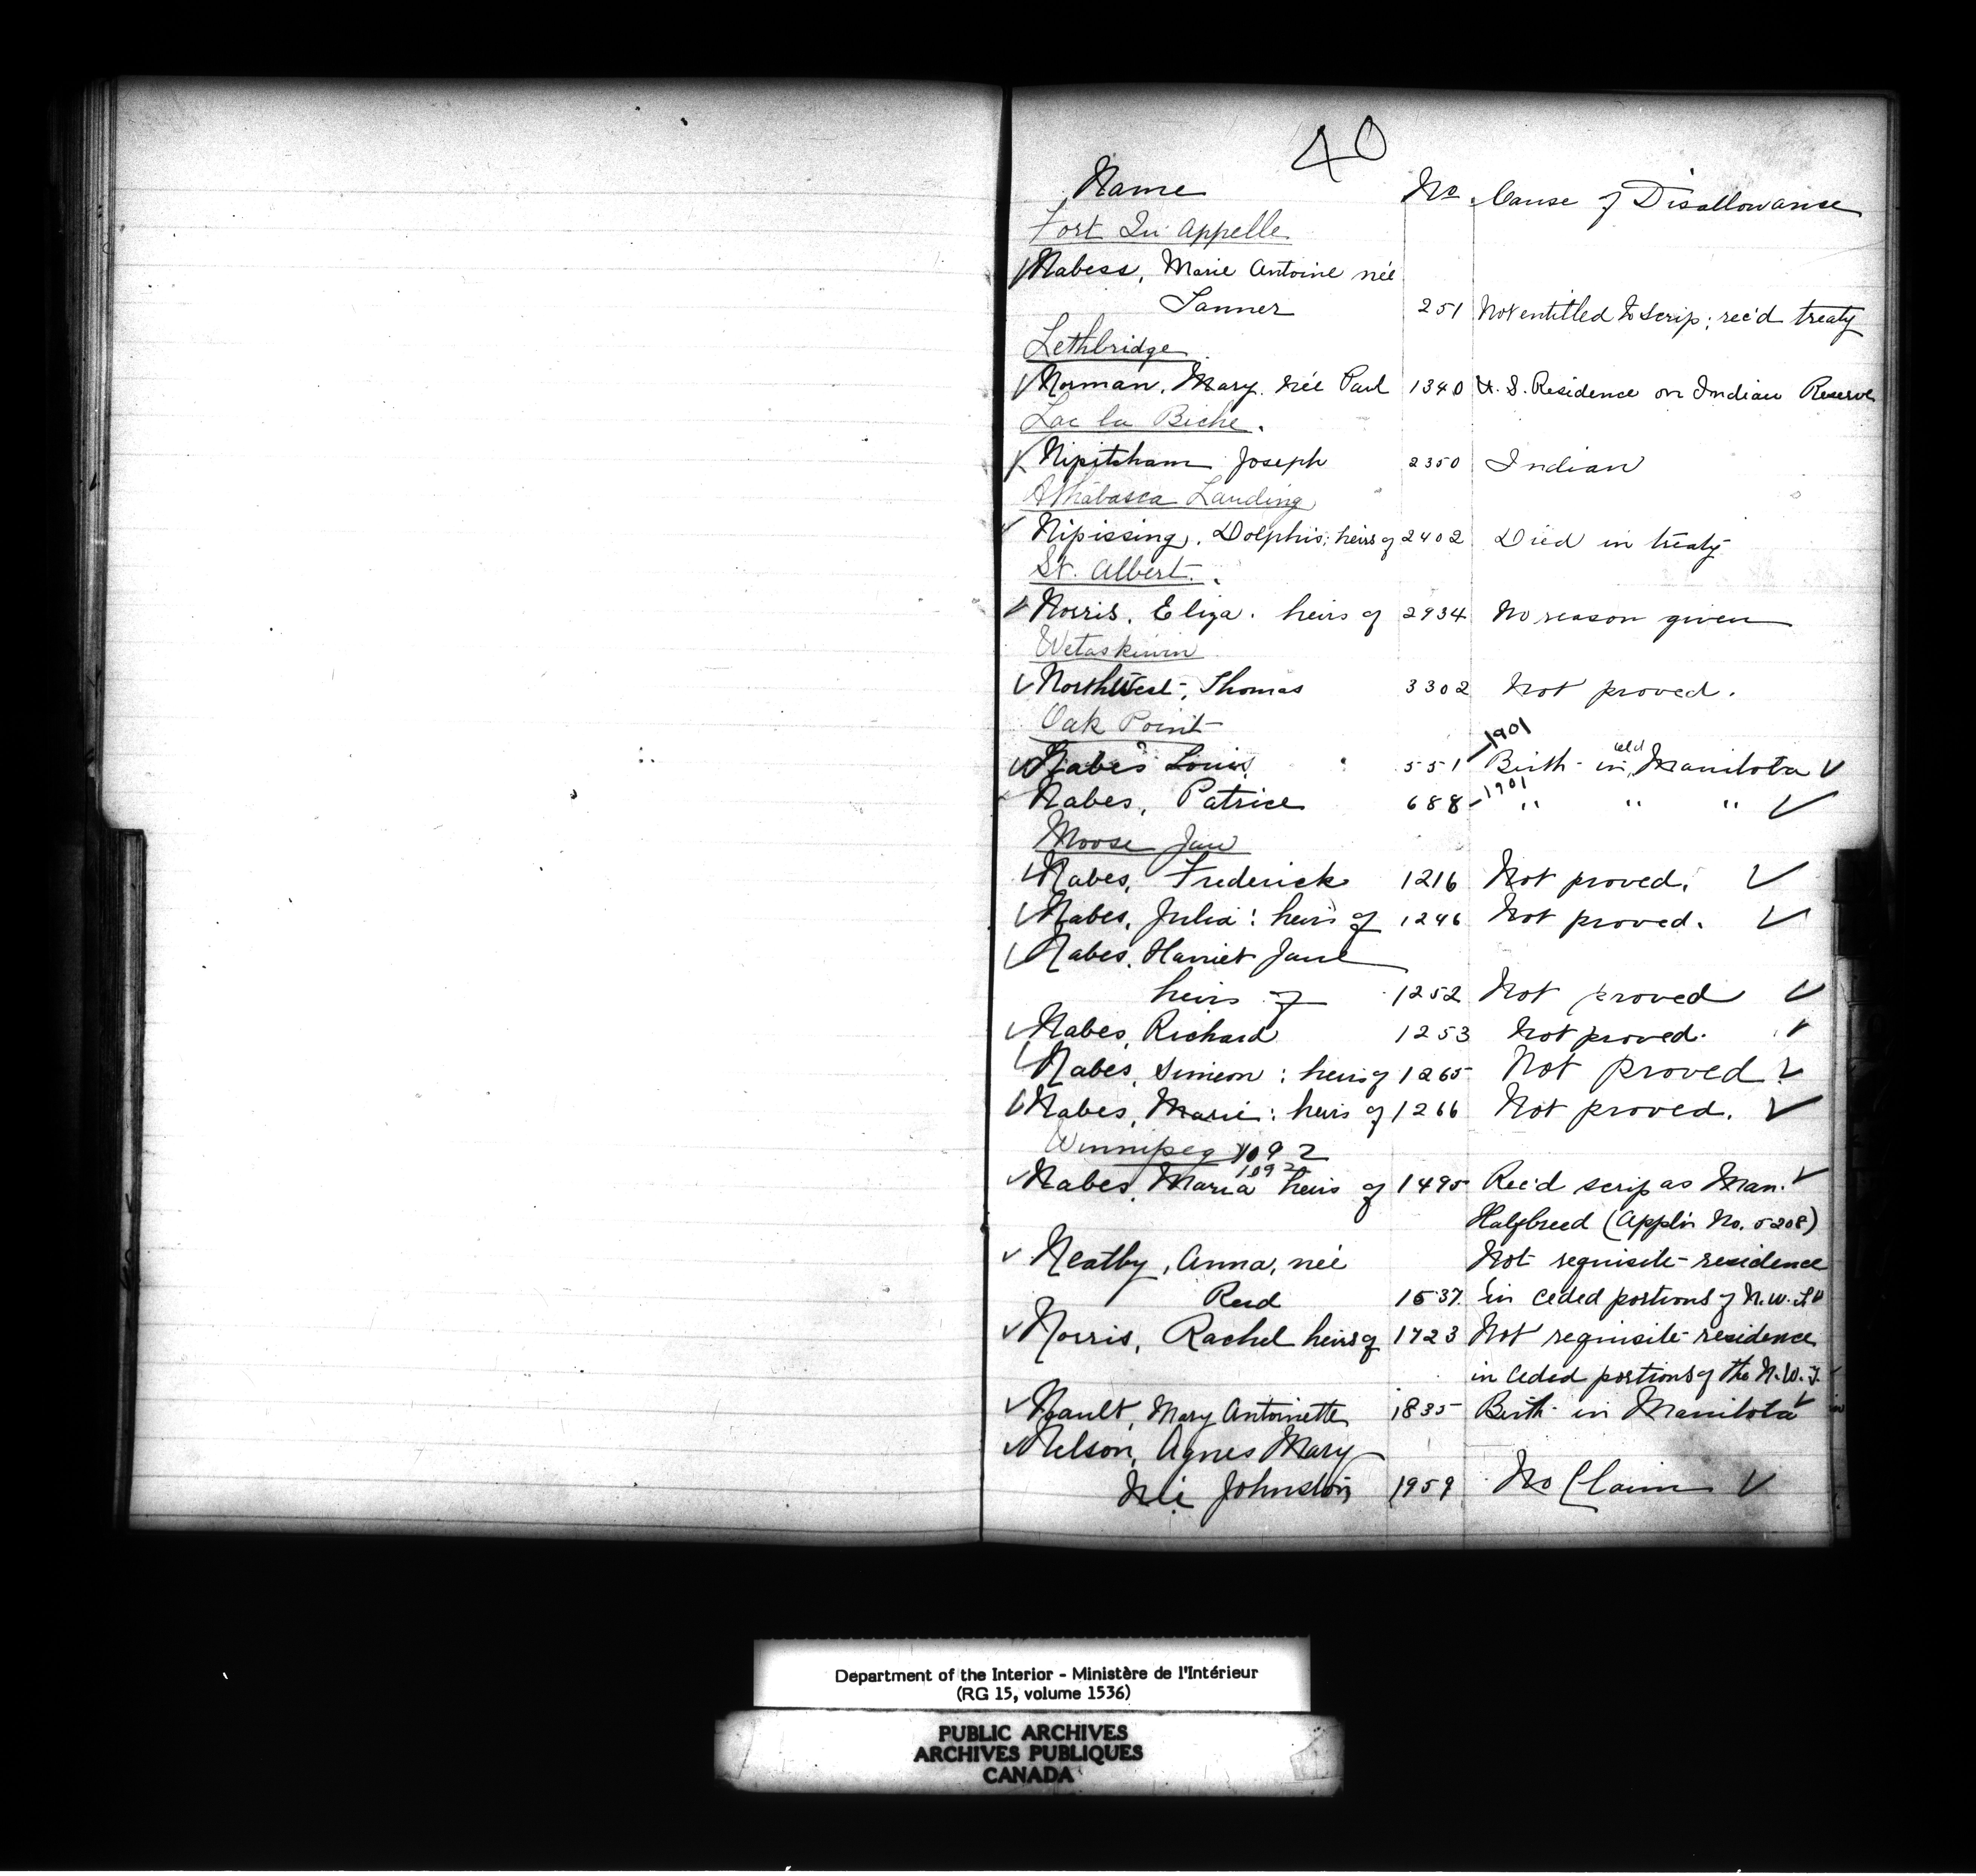 40
Name No. Cause of Disallowance
Fort Qu'Appelle
Nabess, Marie Antoine née
Tanner 251 Not entitled to scrip; rec'd treaty
Lethbridge
Norman, Mary née Paul 1340 U.S. Residence on Indian Reserve
Lac la Biche.
Nipitcham Joseph 2350 Indian
Athabasca Landing
Nipissing, Dolphis; heirs of 2402 Died in treaty
St. Albert.
Norris, Eliza. heirs of 2934 No reason given
Wetaskiwin
NorthWest, Thomas 3302 Not proved.
Oak Point
1901
Nabes Louis 551 Birth in old Manitoba ✓
Nabes, Patrice 688 - 1901 " " " ✓
Moose Jaw
Nabes, Frederick 1216 Not proved. ✓
Nabes, Julia: heirs of 1246 Not proved. ✓
Nabes, Harriet Jane
heirs of 1252 Not proved ✓
Nabes, Richard 1253 Not proved. ✓
Nabes, Simeon: heirs of 1265 Not Proved ✓
Nabes, Marie: heirs of 1266 Not proved. ✓
Winnipeg 1092
1092
Nabes, Maria heirs of 1495 Rec'd scrip as Man. ✓
Halfbreed (Appl'n No. 5208)
Neatby, Anna, née Not requisite residence
Reid 1537 in ceded portions of N.W.T.
Norris, Rachel heirs of 1723 Not requisite residence
in ceded portions of the N.W.T.
Nault, Mary Antoinette 1835 Birth in Manitoba ✓
Nelson, Agnes Mary
Née Johnston 1959 No Claim ✓
Department of the Interior - Ministère de l'Intérieur
(RG 15, volume 1536)
PUBLIC ARCHIVES
ARCHIVES PUBLIQUES
CANADA